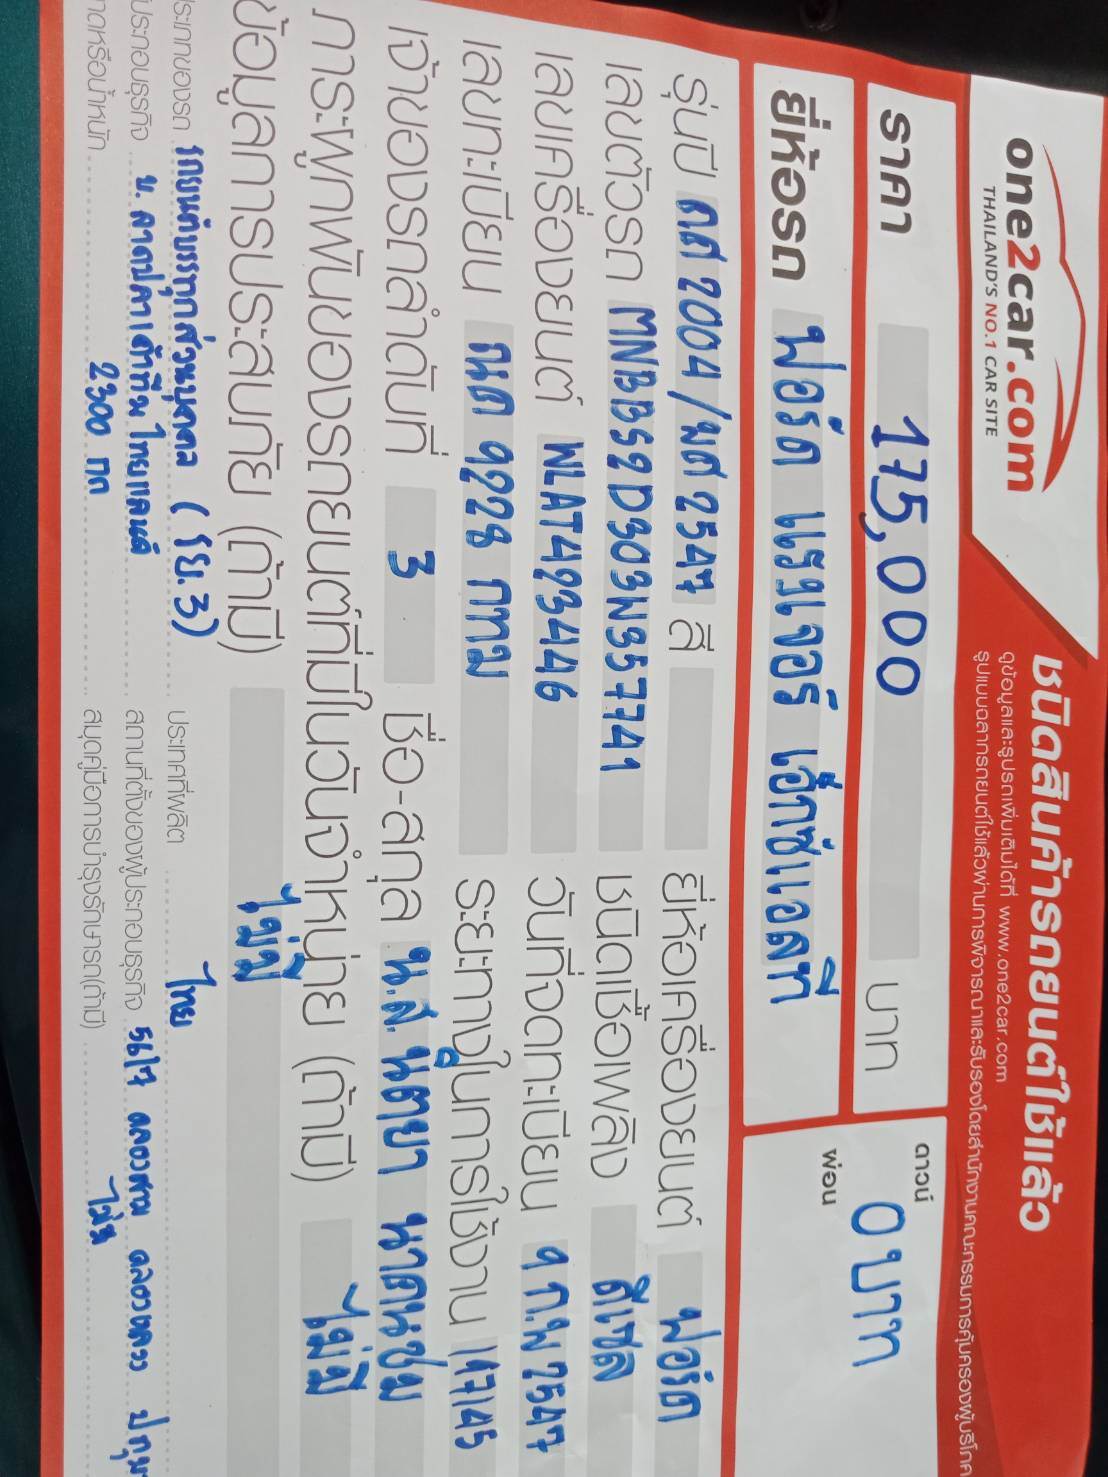 one2car.com
THAILAND'S NO.1 CAR SITE
ชนิดสินค้ารถยนต์ใช้แล้ว
ดูข้อมูลและรูปรถเพิ่มเติมได้ที่ www.one2car.com
รูปแบบฉลากรถยนต์ใช้แล้วผ่านการพิจารณาและรับรองโดยสำนักงานคณะกรรมการคุ้มครองผู้บริโภค
ราคา 175,000 บาท
ดาวน์ 0 บาท
ยี่ห้อรถ ฟอร์ด เรนเจอร์ เอ็กซ์แอลที
ผ่อน
รุ่นปี คศ 2004/พศ 2547 สี ยี่ห้อเครื่องยนต์ ฟอร์ด
เลขตัวรถ ชนิดเชื้อเพลิง ดีเซล
เลขเครื่องยนต์ WLAT493446 วันที่จดทะเบียน 9 ก.พ 2547
เลขทะเบียน 9228 กทม ระยะทางในการใช้งาน 147145
เจ้าของรถลำดับที่ 3 ชื่อ-สกุล น.ส.
ภาระผูกพันของรถยนต์ที่มีในวันจำหน่าย (ถ้ามี) ไม่มี
ข้อมูลการประสบภัย (ถ้ามี) ไม่มี
ประเภทของรถ รถยนต์บรรทุกส่วนบุคคล (รย.3) ประเทศที่ผลิต ไทย
ประกอบธุรกิจ บ. ไทยแลนด์ สถานที่ตั้งของผู้ประกอบธุรกิจ 56/7 คลองหลวง
2300 กก สมุดคู่มือการบำรุงรักษารถ(ถ้ามี) ไม่มี